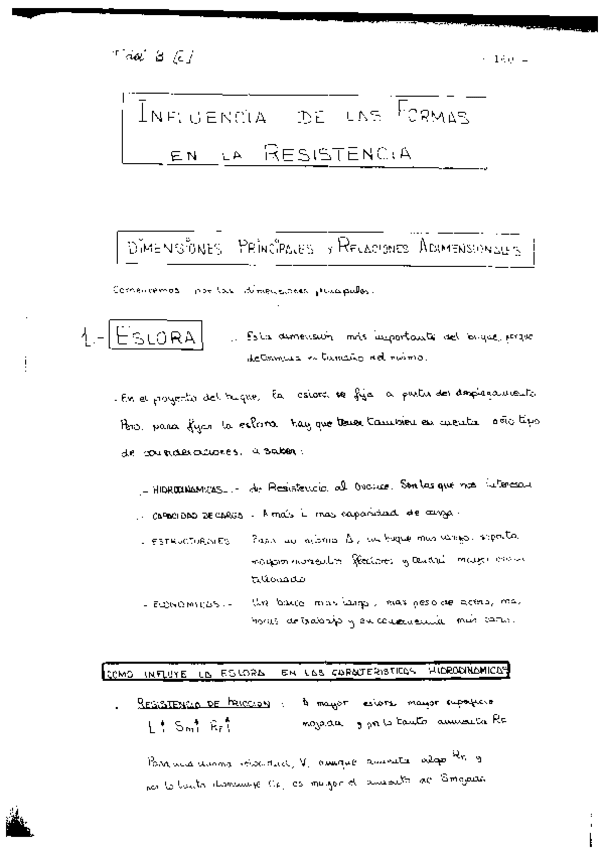 B [c]
- 160 -
INFLUENCIA DE LAS FORMAS
EN LA RESISTENCIA
DIMENSIONES PRINCIPALES Y RELACIONES ADIMENSIONALES
Comencemos por las dimensiones principales.
1.- ESLORA .. Es la dimensión más importante del buque, porque
determina el tamaño del mismo.
- En el proyecto del buque, la eslora se fija a partir del desplazamiento
Pero, para fijar la eslora hay que tener tambien en cuenta otro tipo
de consideraciones, a saber:
.- HIDRODINAMICAS .- de Resistencia al Avance. Son las que nos interesan
. CAPACIDAD DE CARGA - A más L mas capacidad de carga.
- ESTRUCTURALES Para un mismo Δ, un buque mas largo, soporta
mayores momentos flectores y tendrá mayor
- ECONOMICAS .- Un barco mas largo, mas peso de acero, mas
horas de trabajo y en consecuencia más caro.
COMO INFLUYE LA ESLORA EN LAS CARACTERISTICAS HIDRODINAMICAS
. RESISTENCIA DE FRICCION : A mayor eslora mayor superficie
L↑ Sm↑ RF↑ mojada y por lo tanto aumenta RF
Para una misma velocidad, V, aunque aumenta algo Rn y
por lo tanto disminuye CF, es mayor el aumento de Smojada